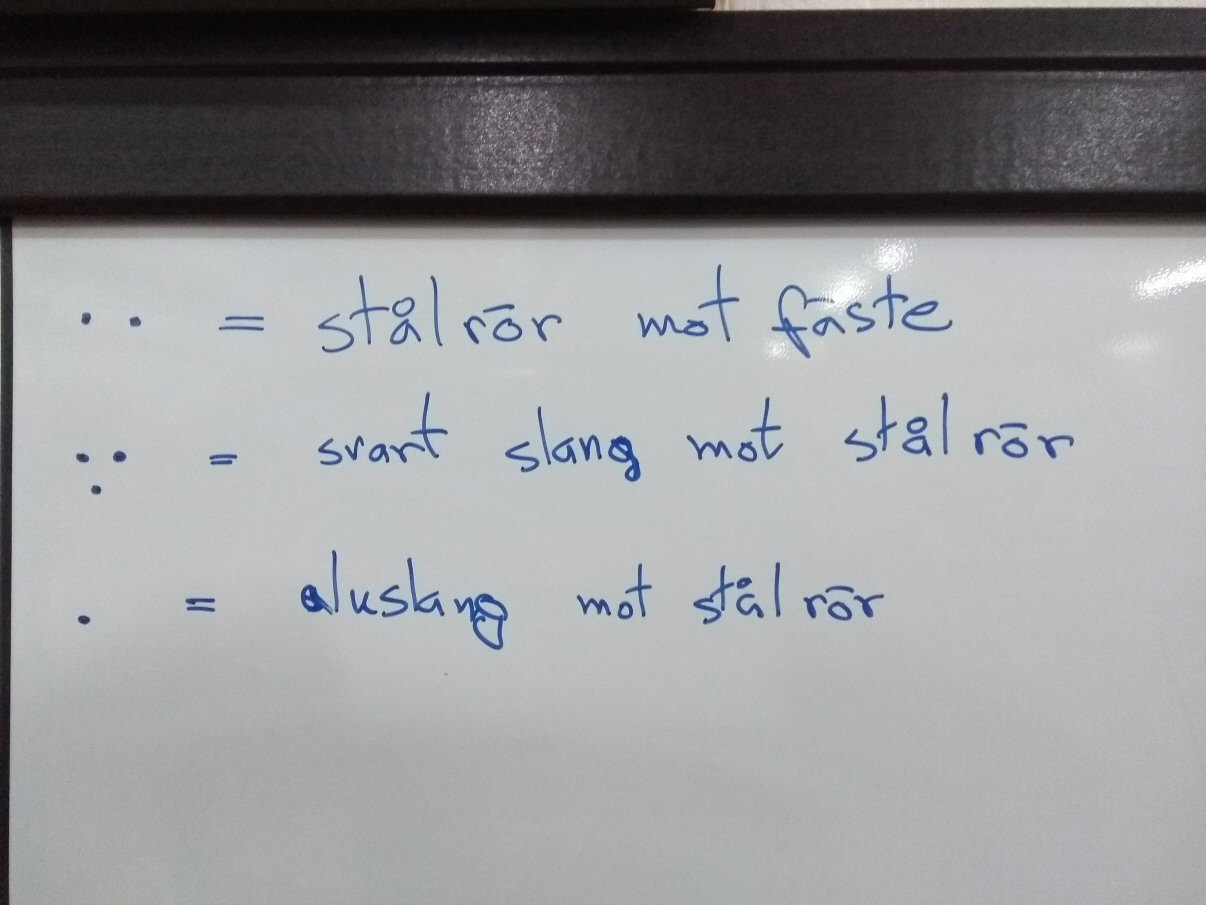 .. = stålrör mot fäste
∵ = svart slang mot stålrör
. = aluslang mot stålrör